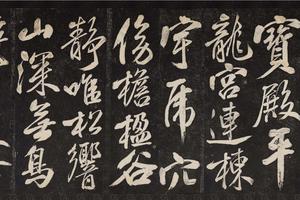 寶殿平
龍宮連棟
宇虎穴
傍檐楹谷
靜唯松響
山深無鳥